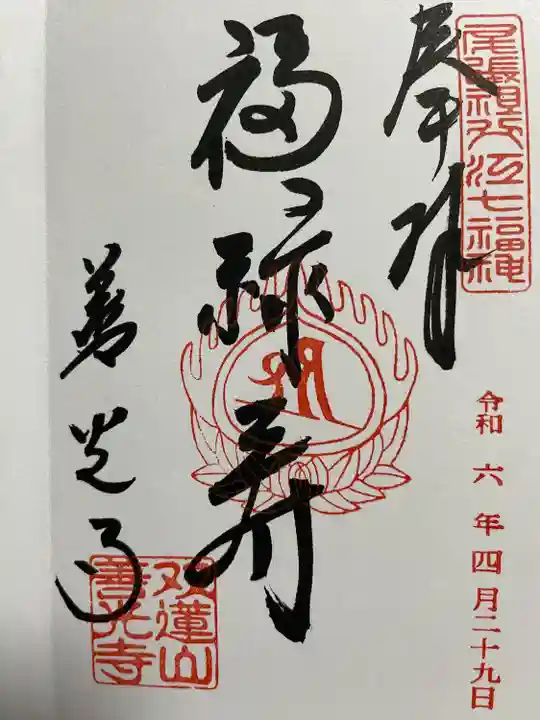 尾張須ケ江七福神
奉拝
令和六年四月二十九日
福禄寿
善光寺
双蓮山
善光寺